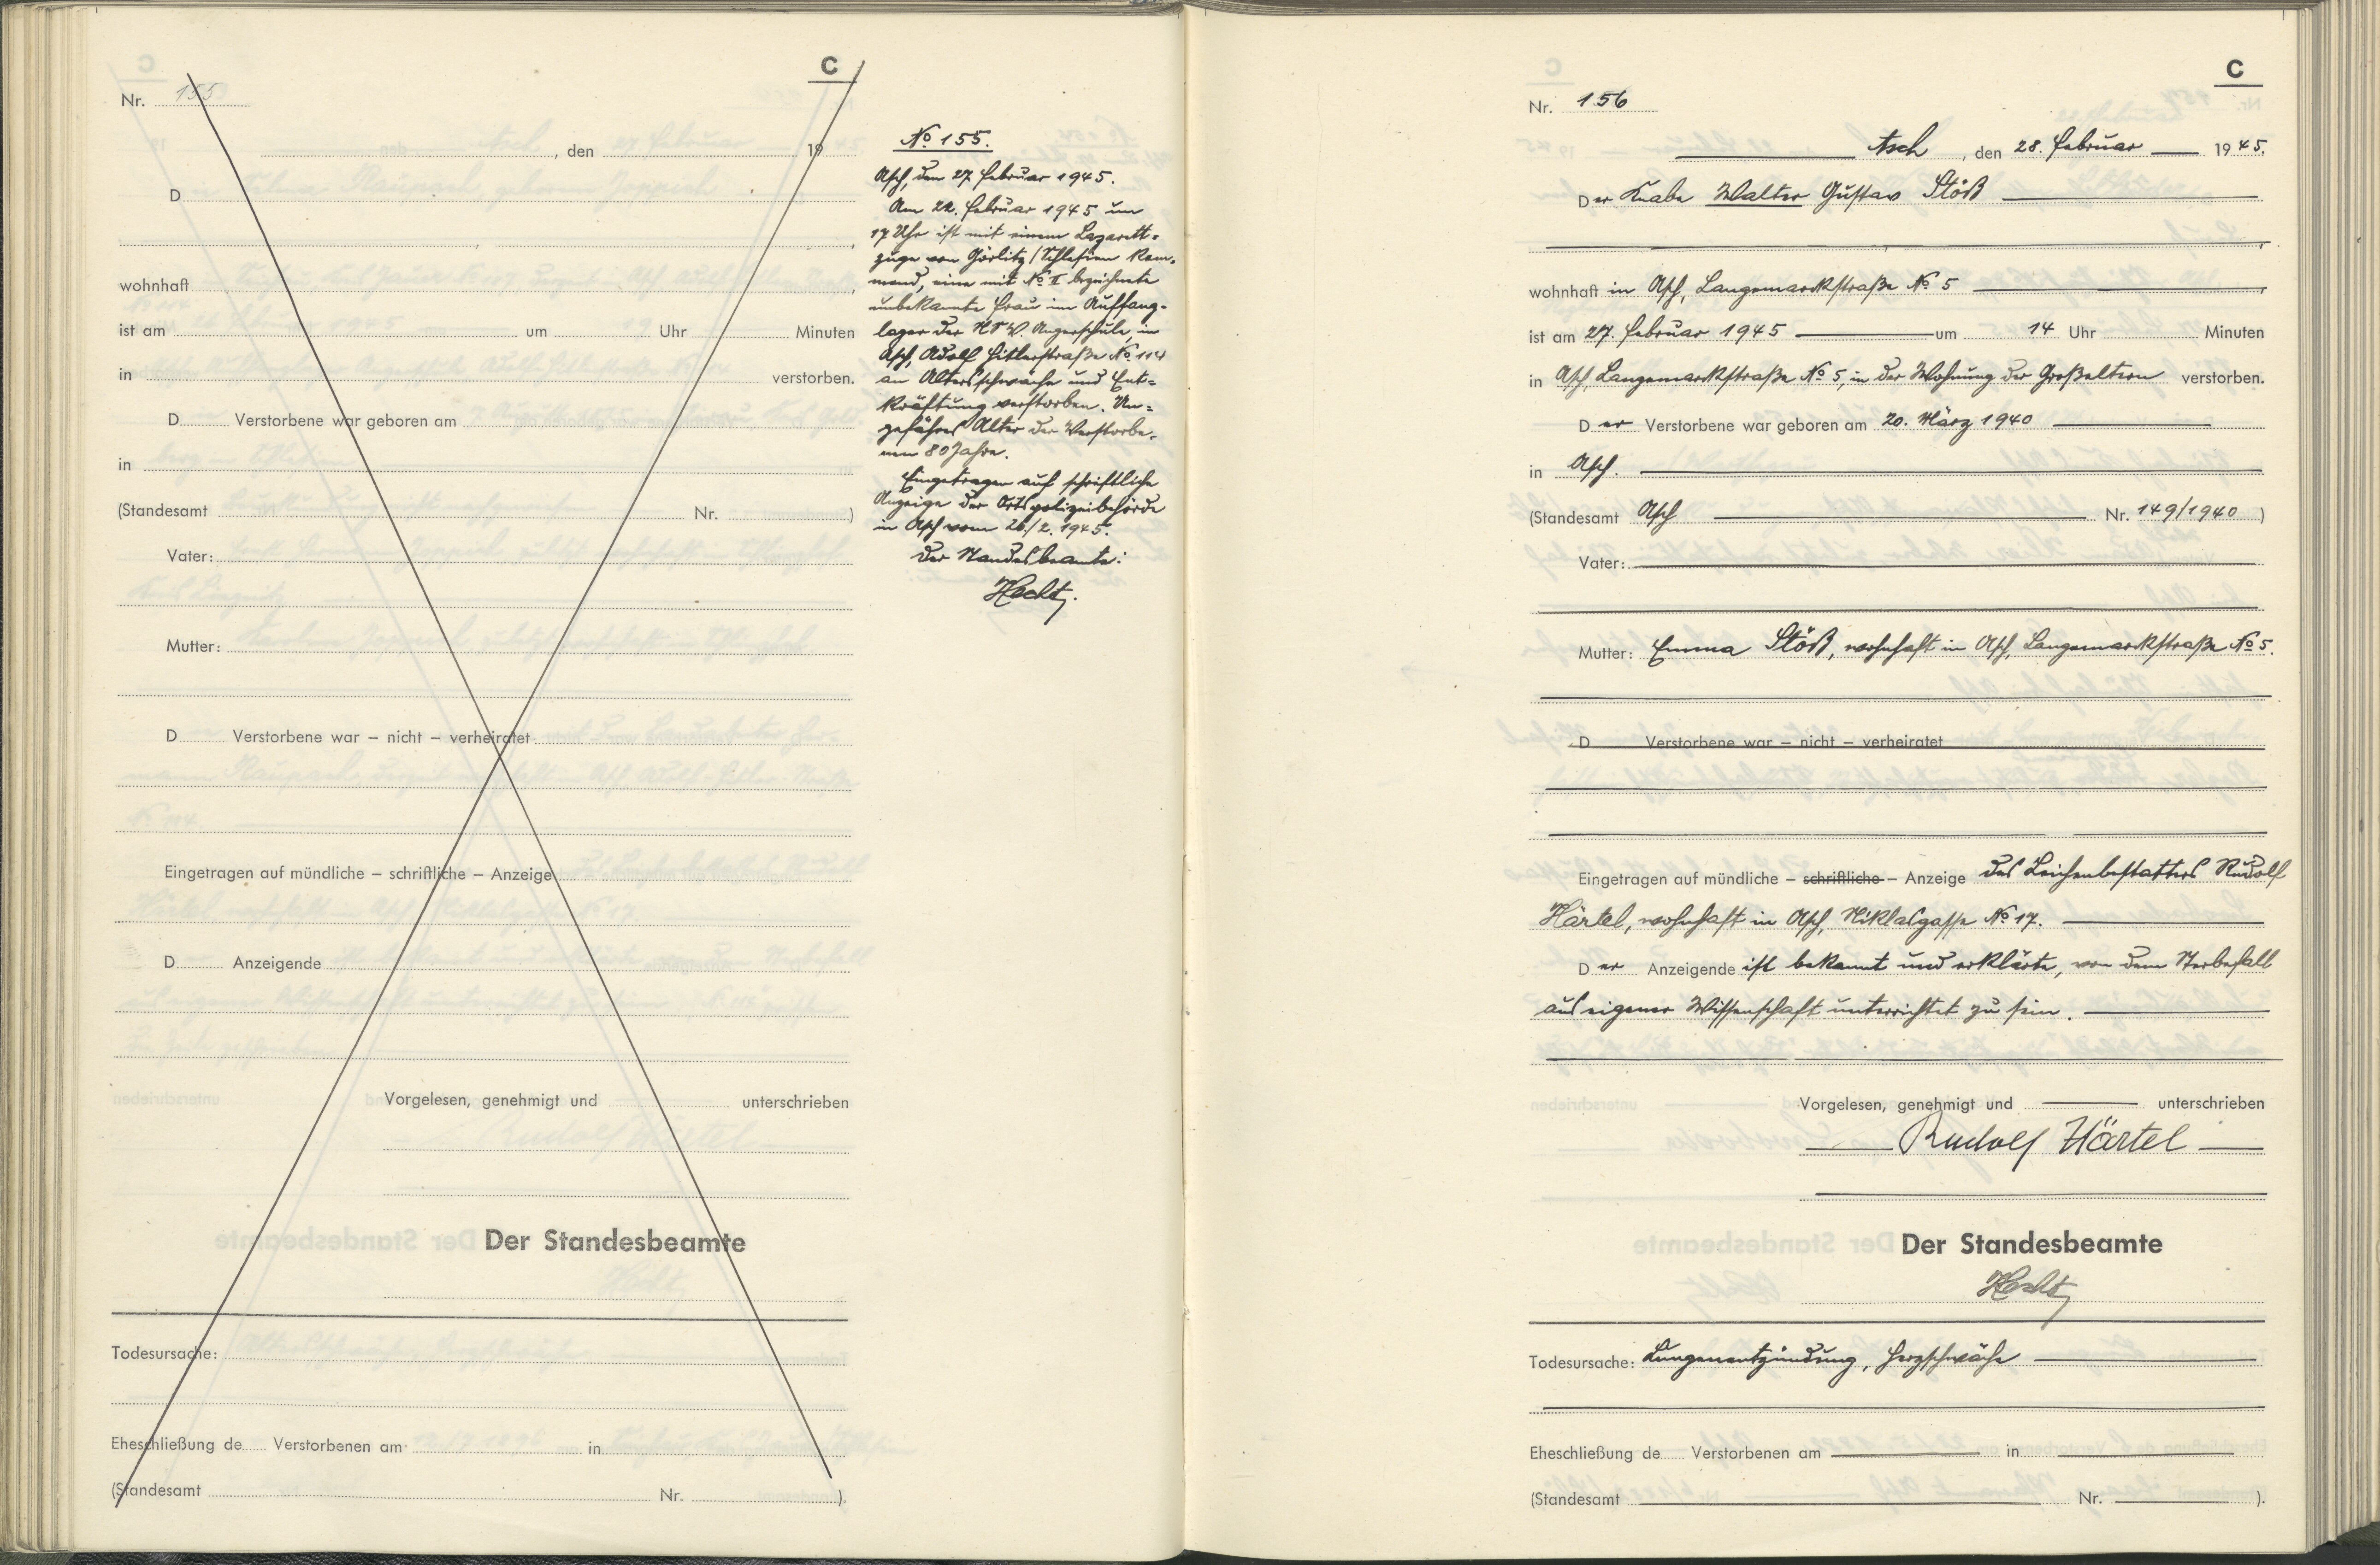 C
Nr. 155
, den 19
D
wohnhaft
ist am um Uhr Minuten
in verstorben.
D Verstorbene war geboren am
in
(Standesamt Nr. )
Vater:
Mutter:
D Verstorbene war – nicht – verheiratet
Eingetragen auf mündliche – schriftliche – Anzeige
D Anzeigende
Vorgelesen, genehmigt und unterschrieben
Der Standesbeamte
Todesursache:
Eheschließung de Verstorbenen am in
(Standesamt Nr. )
No 155.
Asch, den 27. Februar 1945.
Am 22. Februar 1945 um
17 Uhr ist mit einem Lazarett=
zuge von Görlitz/Schlesien kom=
mend, eine mit No II bezeichnete
unbekannte Frau im Auffang=
lager der NSV Angerschule, in
Asch, Adolf Hitlerstraße No 114
an Altersschwäche und Ent=
kräftung verstorben. Un=
gefähres Alter der Verstorbe=
nen 80 Jahre.
Eingetragen auf schriftliche
Anzeige der Ortspolizeibehörde
in Asch vom 26./2. 1945.
Der Standesbeamte:
Hecht
C
Nr. 156
Asch, den 28. Februar 1945.
Der Knabe Walter Gustav Stöß
wohnhaft in Asch, Langemarckstraße No 5
ist am 27. Februar 1945 um 14 Uhr Minuten
in Asch, Langemarckstraße No 5, in der Wohnung der Großeltern verstorben.
Der Verstorbene war geboren am 20. März 1940
in Asch.
(Standesamt Asch Nr. 149/1940 )
Vater:
Mutter: Emma Stöß, wohnhaft in Asch, Langemarckstraße No 5.
D Verstorbene war – nicht – verheiratet
Eingetragen auf mündliche – schriftliche – Anzeige des Leichenbestatters Rudolf
Härtel, wohnhaft in Asch, Niklasgasse No 17.
Der Anzeigende ist bekannt und erklärte, von dem Sterbefall
aus eigener Wissenschaft unterrichtet zu sein.
Vorgelesen, genehmigt und unterschrieben
Rudolf Härtel
Der Standesbeamte
Hecht
Todesursache: Lungenentzündung, Herzschwäche
Eheschließung de Verstorbenen am in
(Standesamt Nr. ).